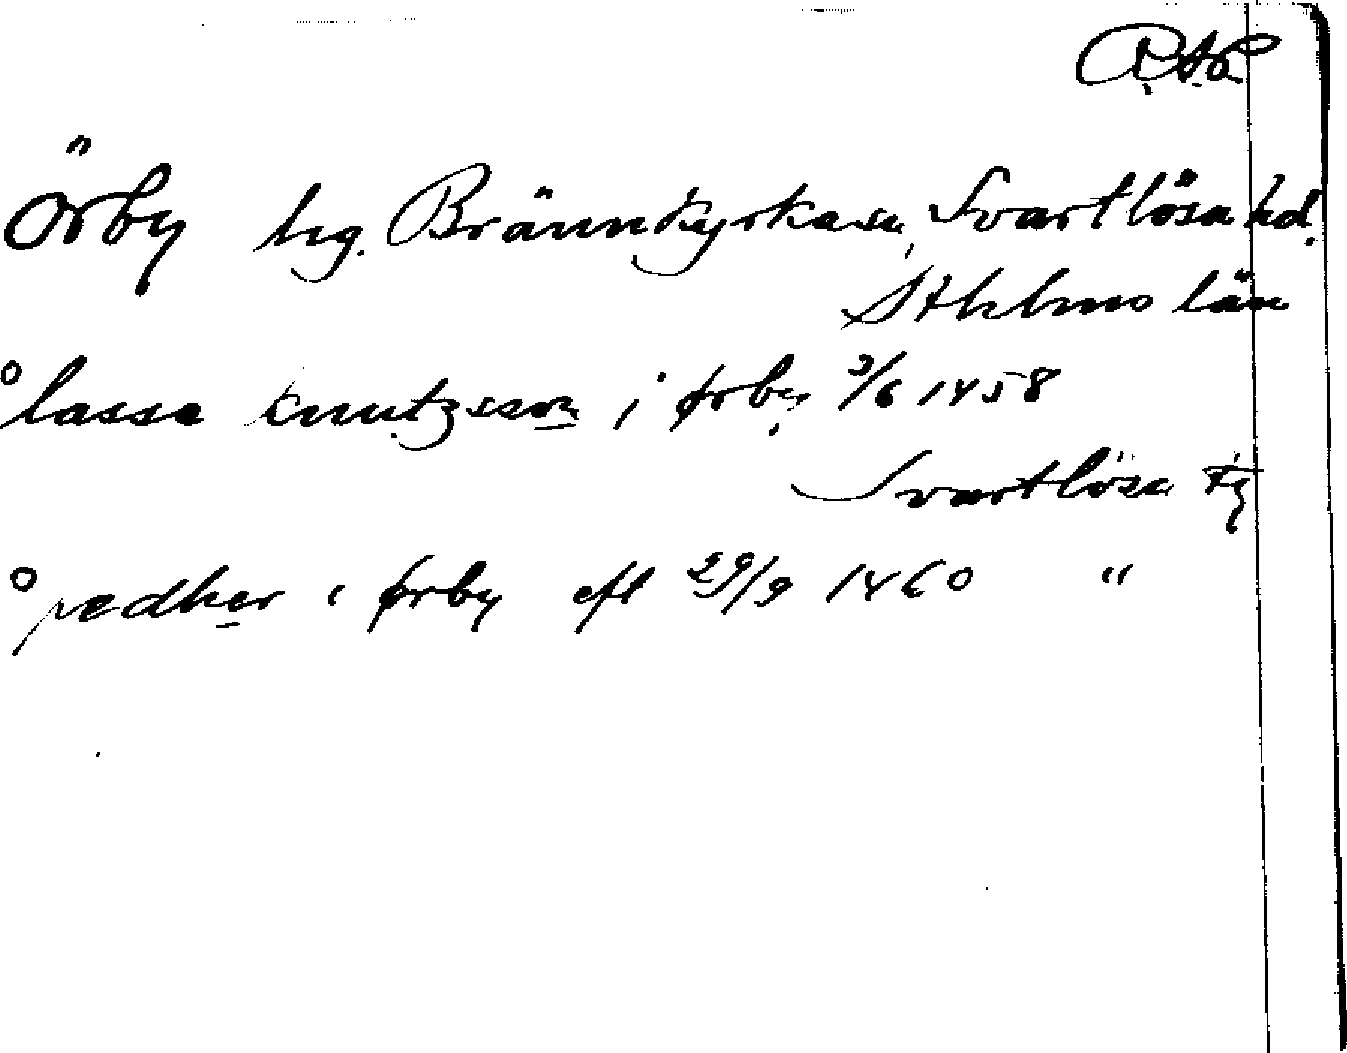 Örby hg. Brännkyrka sn, Svartlösa hd.
Sthlms län
° lasse knutzsson i ørby 3/6 1458
Svartlösa tg
° pedher i ørby eft 29/9 1460 "